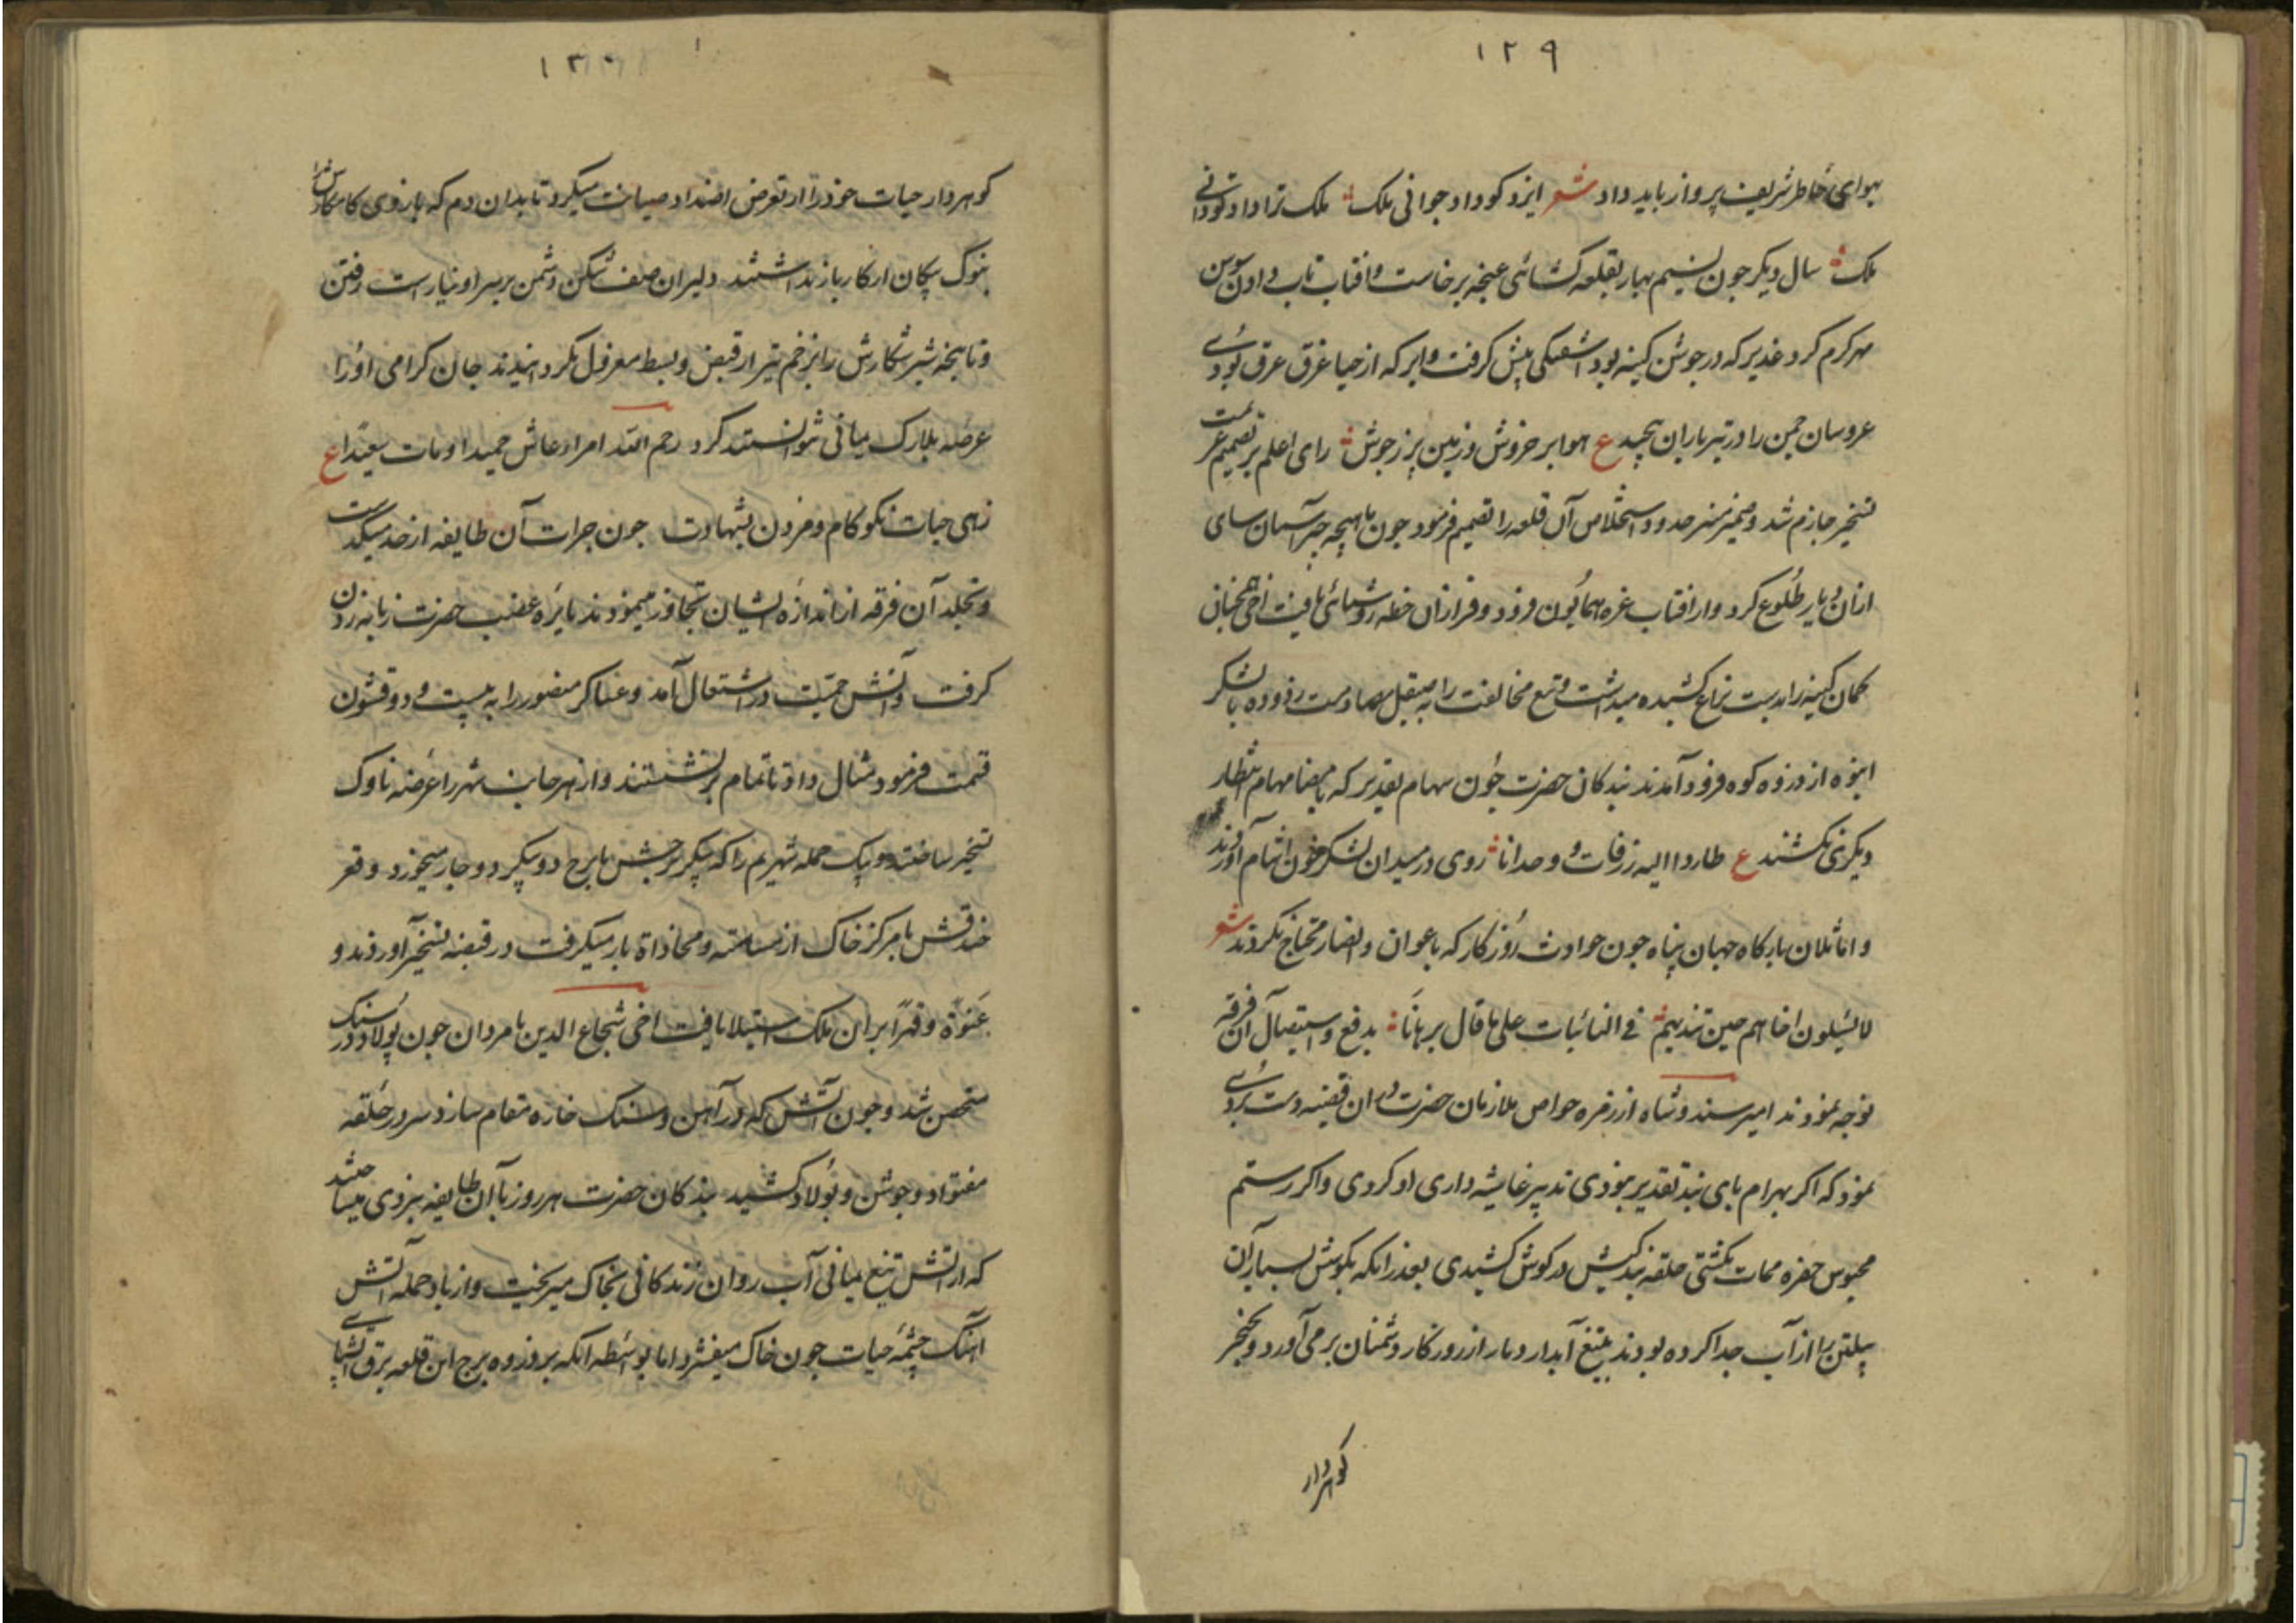 ١٢٩
بهوای خاطر شریف پرواز باید داد شعر ایزد کو داد جوانی ملک ملک ترا داد تو دانی
ملک سال دیکر جون نسیم بهار بقلعه کشائی غنچه برخاست و افتاب تاب داون سوسن
مهر کرم کرد غدیر که در جوشن کینه بود اشفتکی پیش کرفت و ابر که از حیا غرق عرق بودی
عروسان جمن را در تیر باران بیجید ع هوا بر خروش و زمین پر ز جوش رای اعلم بر تصمیم عزیمت
تسخیر جازم شد و ضمیر منیر حدود استخلاص آن قلعه را تصمیم فرمود جون ماهیجه چتر آسمان سای
ازان دیار طلوع کرد و از افتاب غره همایون فرود و فراز آن خطه روشنائی یافت اخی همجنان
کمان کینه را بدست نزاع کشیده میداشت و تیغ مخالفت را به صیقل مصادمت زدوده با لشکر
انبوه از ذروه کوه فرود آمدند بندکان حضرت جون سهام تقدیر که بامضا مهام انتظار
دیکری نکشند ع طاروا الیه زرفات و وحدانا روی در میدان لشکر خون اشام آوردند
و اماثلان بارکاه جهان پناه جون حوادث روزکار که باعوان و انصار محتاج نکردند شعر
لا یسئلون اخاهم حین یندبهم فی النائبات علی ما قال برهانا بدفع و استیصال آن فرقه
توجه نمودند امیر سندوشاه از زمره خواص ملازمان حضرت در ان قضیه دست بردی
نمود که اکر بهرام بای بند تقدیر نبودی تدبیر غاشیه داری او کردی و اکر رستم
محبوس حفره ممات نکشتی حلقه بندکیش در کوش کشیدی بعد زانکه بکوشش بسیار آن
پیلتن را از آب جدا کرده بودند بتیغ آبدار دمار از روزکار دشمنان بر می آورد و بخنجر
کوهردار
١٣٠
کوهردار حیات خود را از تعرض اضداد صیانت میکرد تا بدان دم که بازوی کامکارش را
بنوک پیکان از کار باز نداشتند دلیران صف شکن دشمن بر سر او نیارست رفتن
و تا پنجه شیر شکارش را بزخم تیر از قبض و بسط معزول نکردانیدند جان کرامی او را
عرضه بلارک یمانی نتوانستند کرد رحم الله امرا عاش حمیدا و مات سعیدا ع
زهی حیات نکو کام و مردن بشهادت جون جرات آن طایفه از حد میکذشت
و تجلد آن فرقه از اندازه ایشان تجاوز مینمودند نایره غضب حضرت زبانه زدن
کرفت و آتش حمیت در اشتعال آمد و عساکر منصور را به بیست و دو قشون
قسمت فرمود مثال داد تا تمام بر نشستند و از هر جانب شهر را عرضه ناوک
تسخیر ساختند و بیک حمله شهریم را که پیکر برجش با برج دو پیکر دو جار میخورد و قعر
خندقش با مرکز خاک از مسامته و محاذاة بار میکرفت در قبضه تسخیر آوردند و
عنوة و قهرا بر ان ملک استیلا یافت اخی شجاع الدین با مردان جون پولاد در سنک
متحصن شد و جون آتش که در آهن و سنک خاره مقام سازد سر در حلقه
مفتواد و جوشن و پولاد کشید بندکان حضرت هر روز با آن طایفه نبردی میساختند
که از آتش تیغ یمانی آب روان زندکانی بخاک میریخت و از باد حمله آتش
آهنک چشمه حیات جون خاک میفشرد اما بواسطه انکه بر ذروه برج این قلعه برق آتش پای